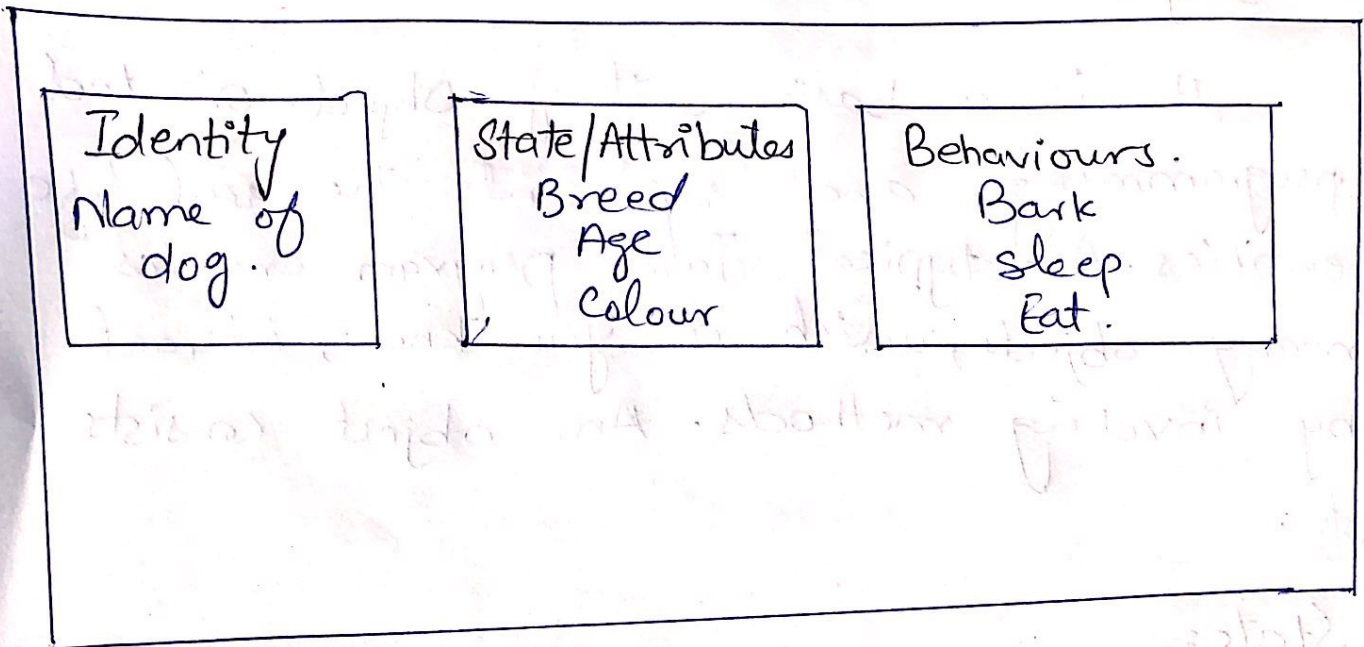 Identity
Name of
dog.
State/Attributes
Breed
Age
Colour
Behaviours.
Bark
sleep.
Eat.